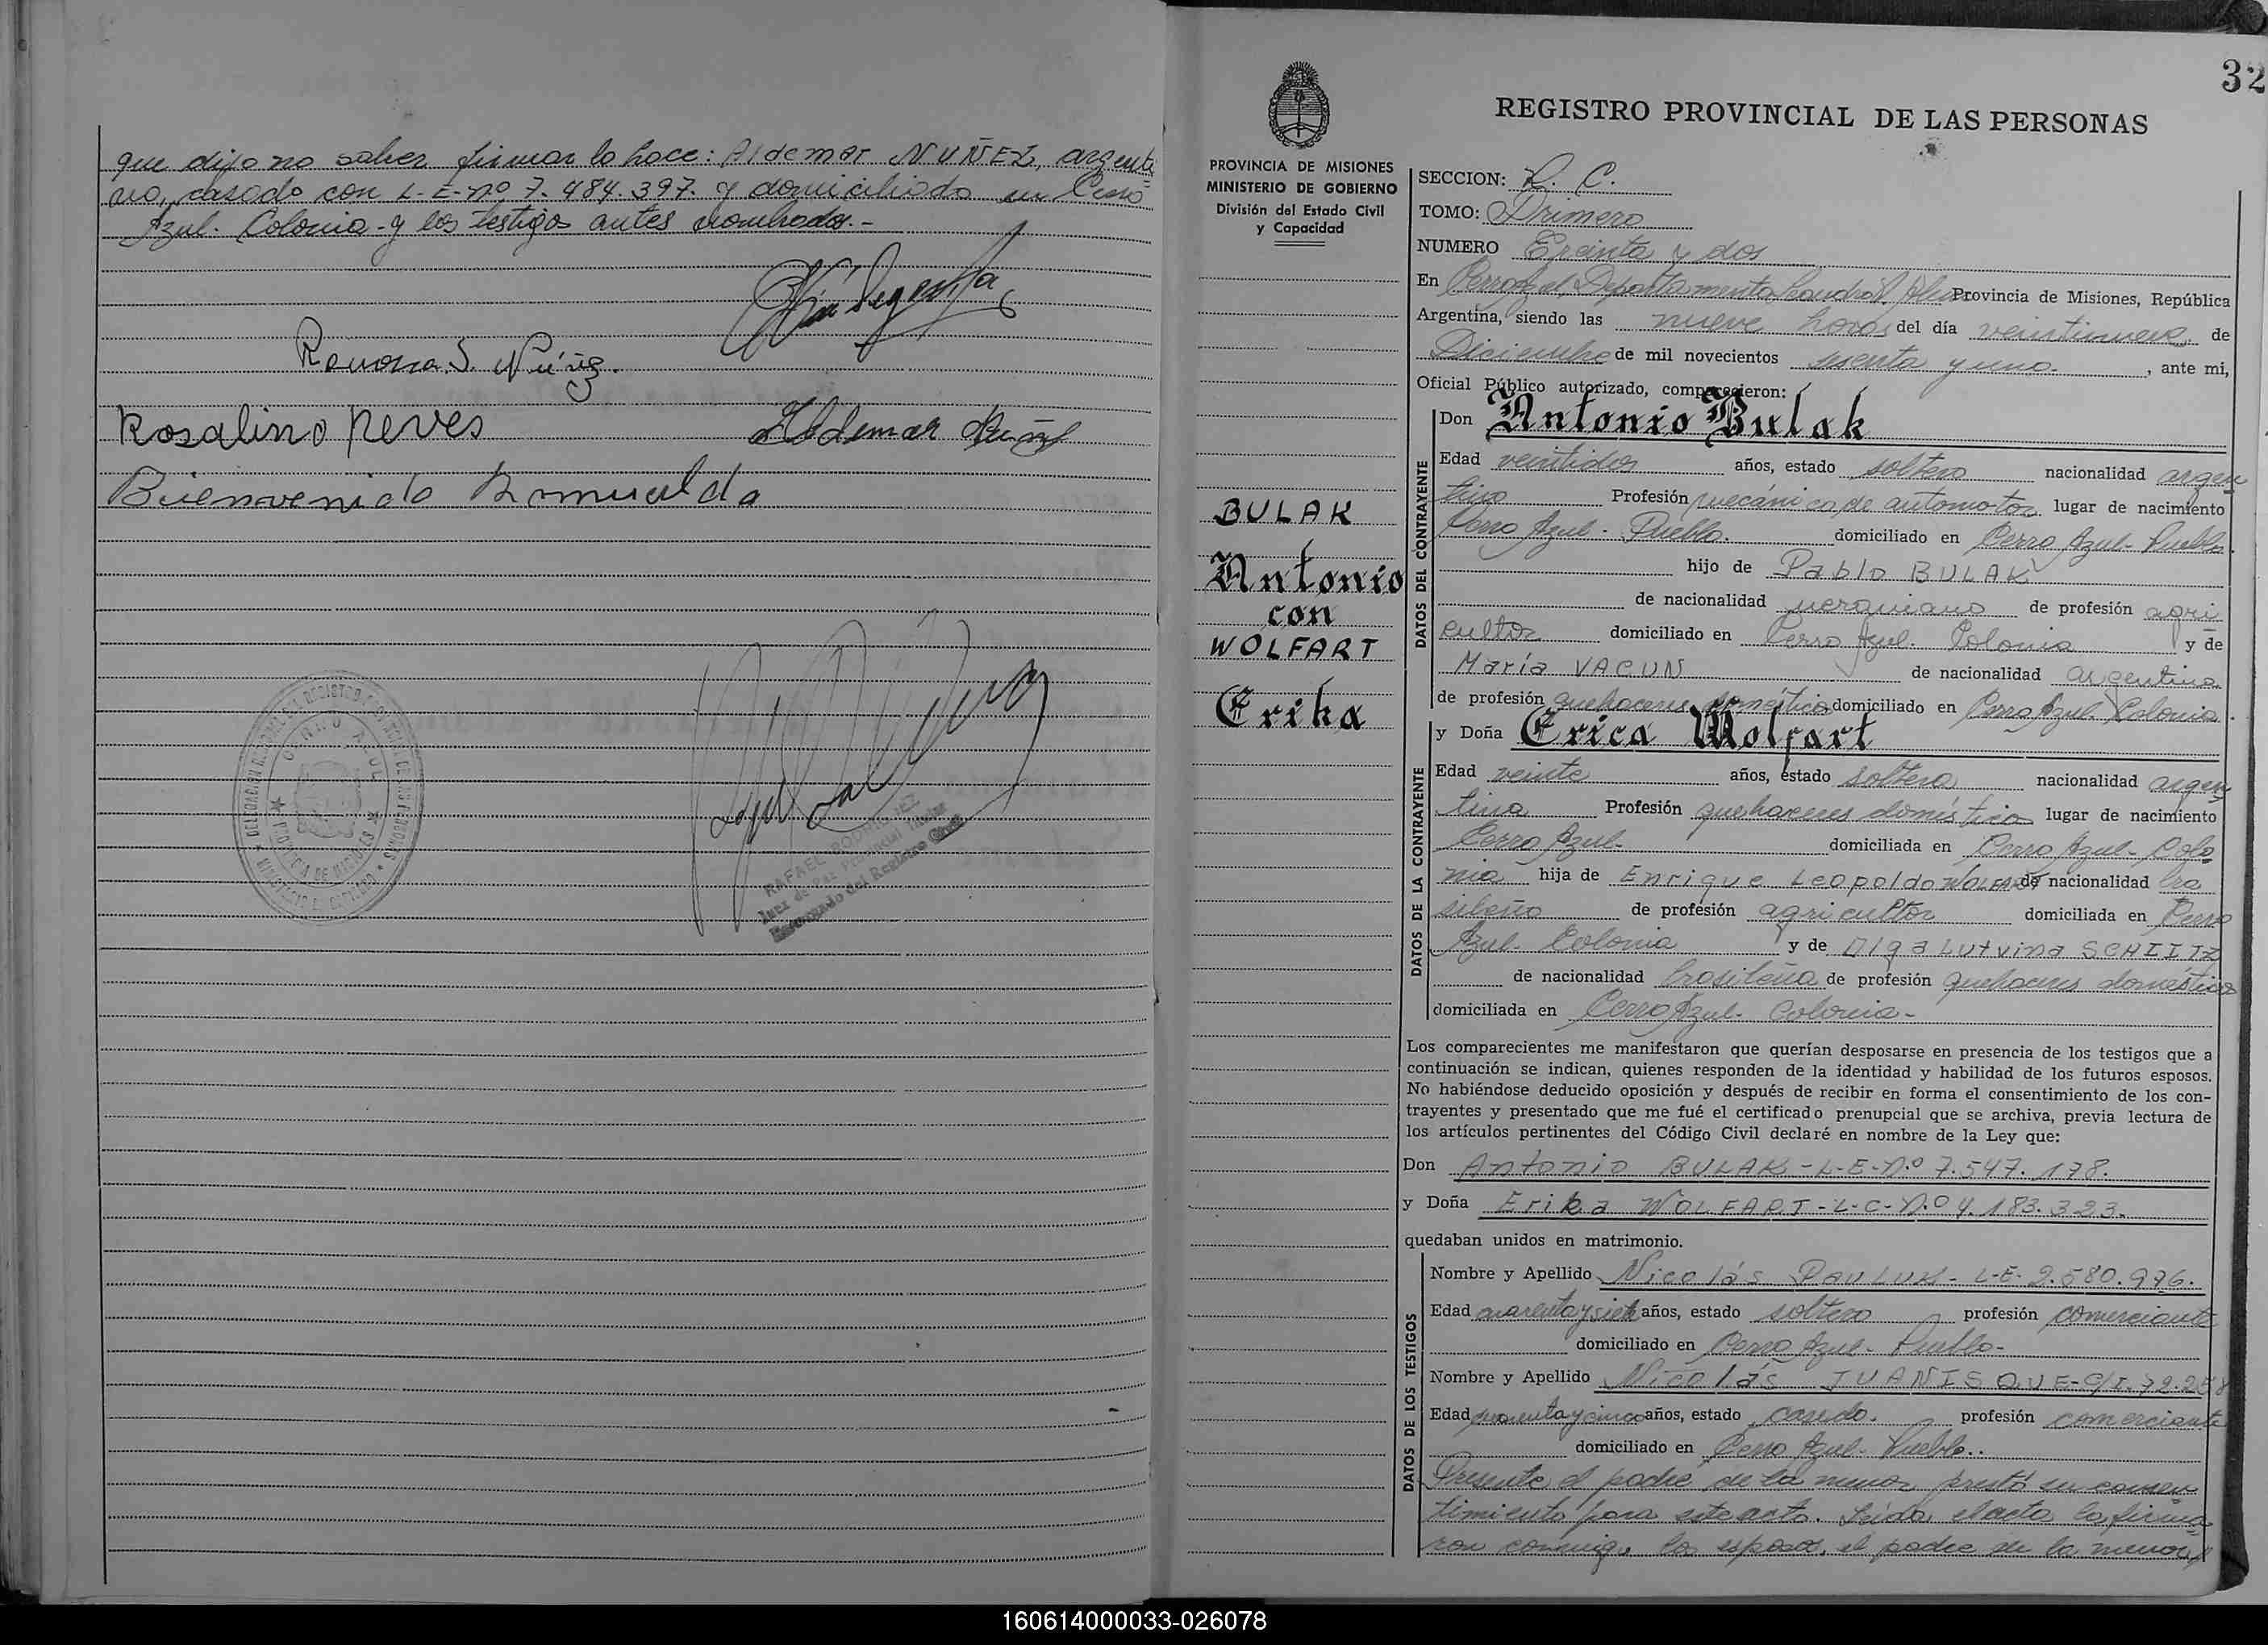 que dijo no saber firmar lo hace: Aldemar NUÑEZ, argenti
no, casado con L-E-nº 7.484.397. y domiciliado en Cerro
Azul. Colonia - y los testigos antes nombrados.-
Ramona S. Núñez.
Rosalino Neves
Aldemar Nuñez
Bienvenido Romualdo
CERRO AZUL
PROVINCIA DE MISIONES
RAFAEL RODRIGUEZ
Juez de Paz Provincial Titular
Encargado del Registro Civil
32
REGISTRO PROVINCIAL DE LAS PERSONAS
PROVINCIA DE MISIONES
MINISTERIO DE GOBIERNO
División del Estado Civil
y Capacidad
BULAK
Antonio
con
WOLFART
Erika
SECCION: R. C.
TOMO: Primero
NUMERO Treinta y dos
En Cerro Azul, Departamento Leandro N. Alem Provincia de Misiones, República
Argentina, siendo las nueve horas del día veintinueve de
Diciembre de mil novecientos sesenta y uno. , ante mi,
Oficial Público autorizado, comparecieron:
DATOS DEL CONTRAYENTE
Don Antonio Bulak
Edad veintidos años, estado soltero nacionalidad argen
tino Profesión mecánico de automotor lugar de nacimiento
Cerro Azul - Pueblo. domiciliado en Cerro Azul - Pueblo.
hijo de Pablo BULAK
de nacionalidad ucraniano de profesión agri
cultor domiciliado en Cerro Azul. Colonia y de
María VACUN de nacionalidad argentina
de profesión quehaceres domésticos domiciliado en Cerro Azul. Colonia.
DATOS DE LA CONTRAYENTE
y Doña Erica Wolfart
Edad veinte años, estado soltera nacionalidad argen
tina Profesión quehaceres domésticos lugar de nacimiento
Cerro Azul. domiciliada en Cerro Azul - Colo
nia hija de Enrique Leopoldo WOLFART de nacionalidad bra
sileño de profesión agricultor domiciliada en Cerro
Azul - Colonia y de Olga Lutvina
de nacionalidad brasileña de profesión quehaceres domésticos
domiciliada en Cerro Azul - Colonia -
Los comparecientes me manifestaron que querían desposarse en presencia de los testigos que a
continuación se indican, quienes responden de la identidad y habilidad de los futuros esposos.
No habiéndose deducido oposición y después de recibir en forma el consentimiento de los con-
trayentes y presentado que me fué el certificado prenupcial que se archiva, previa lectura de
los artículos pertinentes del Código Civil declaré en nombre de la Ley que:
Don Antonio BULAK - L-E-Nº 7.547.178.
y Doña Erika WOLFART - L-C-Nº 4.183.323.
quedaban unidos en matrimonio.
DATOS DE LOS TESTIGOS
Nombre y Apellido Nicolás PAULUK - L-E-
Edad cuarenta y siete años, estado soltero profesión comerciante
domiciliado en Cerro Azul - Pueblo -
Nombre y Apellido Nicolás JUANISQUE - C/I.
Edad y cinco años, estado casado. profesión comerciante
domiciliado en Cerro Azul - Pueblo..
Presente el padre de la menor prestó su consen
timiento para este acto. Leída el acta la firma
ron conmigo los esposos, el padre de la menor y
160614000033-026078